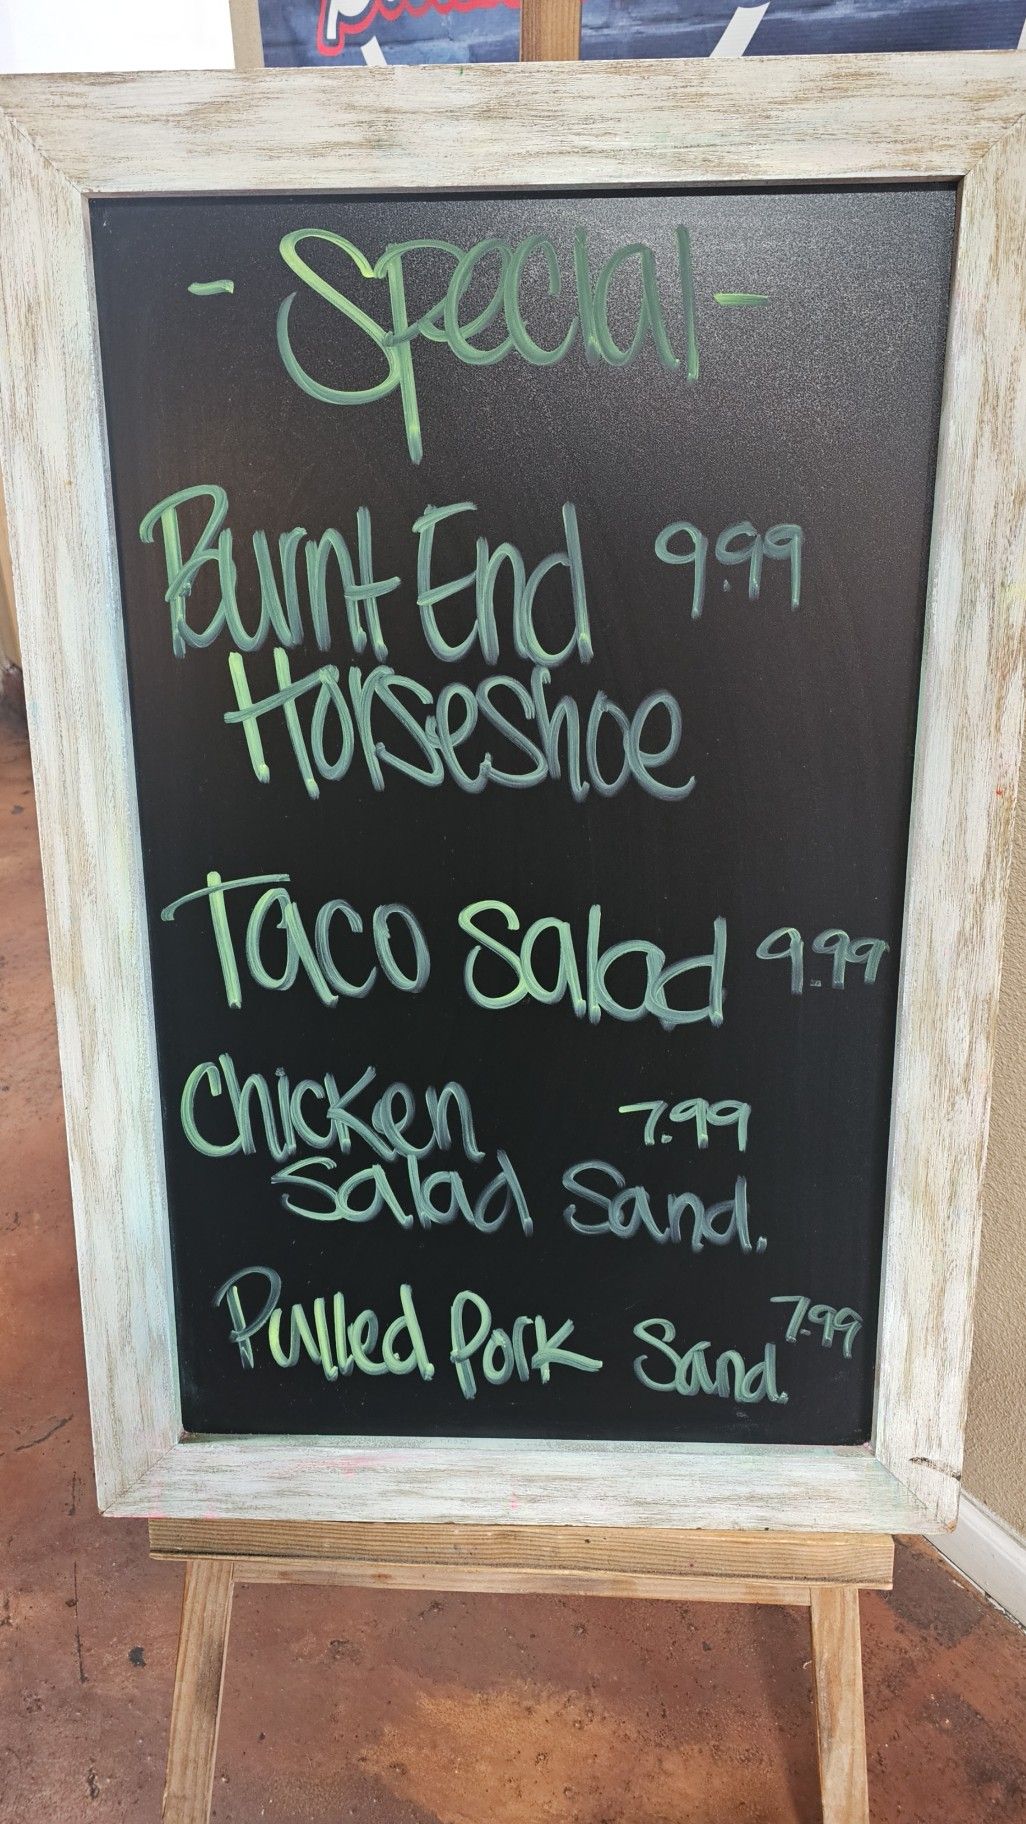 - Special -
Burnt End 9.99
Horseshoe
Taco Salad 9.99
Chicken 7.99
Salad Sand.
Pulled Pork Sand. 7.99